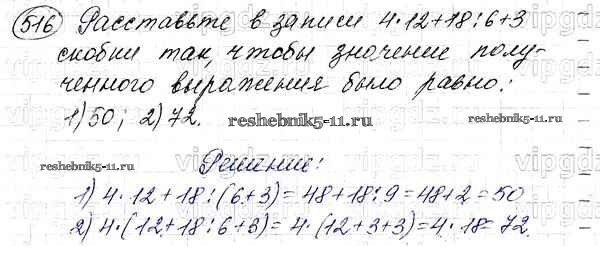 516 Расставьте в записи 4·12+18:6+3
скобки так, чтобы значение полу-
ченного выражения было равно:
1) 50; 2) 72.
reshebnik5-11.ru
reshebnik5-11.ru reshebnik5-11.ru
Решение:
1) 4·12+18:(6+3)=48+18:9=48+2=50
2) 4·(12+18:6+3)=4·(12+3+3)=4·18=72.